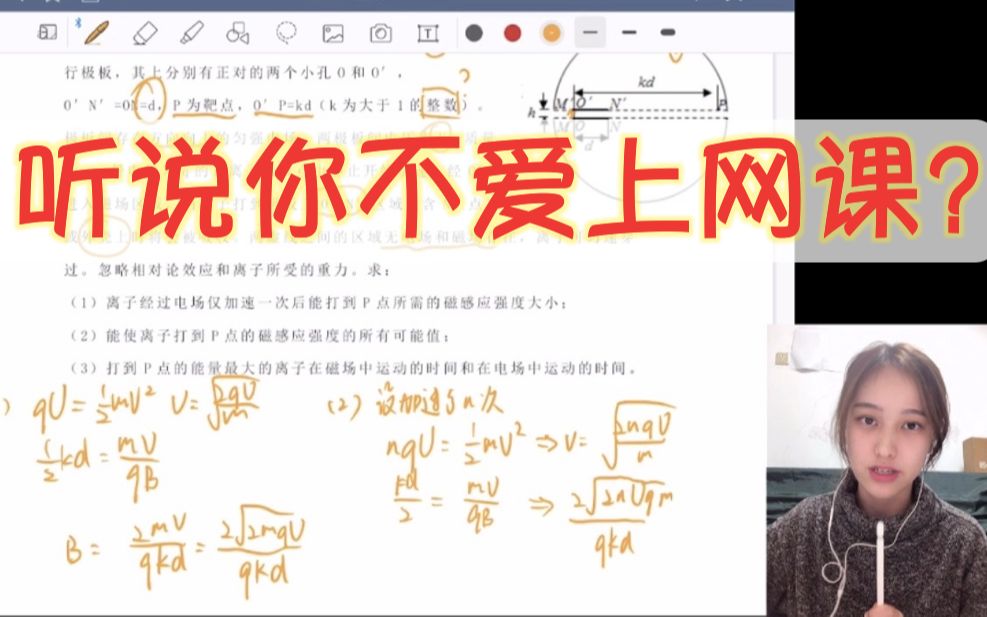 行极板，其上分别有正对的两个小孔 O 和 O′，
O′ N′ =ON=d，P 为靶点，O′ P=kd（k 为大于 1 的整数）。
?
kd
M′ O′ N′ P
h
M O N
d
听说你不爱上网课?
过。忽略相对论效应和离子所受的重力。求：
（1）离子经过电场仅加速一次后能打到 P 点所需的磁感应强度大小；
（2）能使离子打到 P 点的磁感应强度的所有可能值；
（3）打到 P 点的能量最大的离子在磁场中运动的时间和在电场中运动的时间。
) qU = 1/2 mV² V = √(2qU/m)
1/2 kd = mV/qB
B = 2mV/qkd = 2√(2mqU)/qkd
(2) 设加速了n次
nqU = 1/2 mV² ⇒ V = √(2nqU/m)
kd/2 = mV/qB ⇒ 2√(2nUqm)/qkd